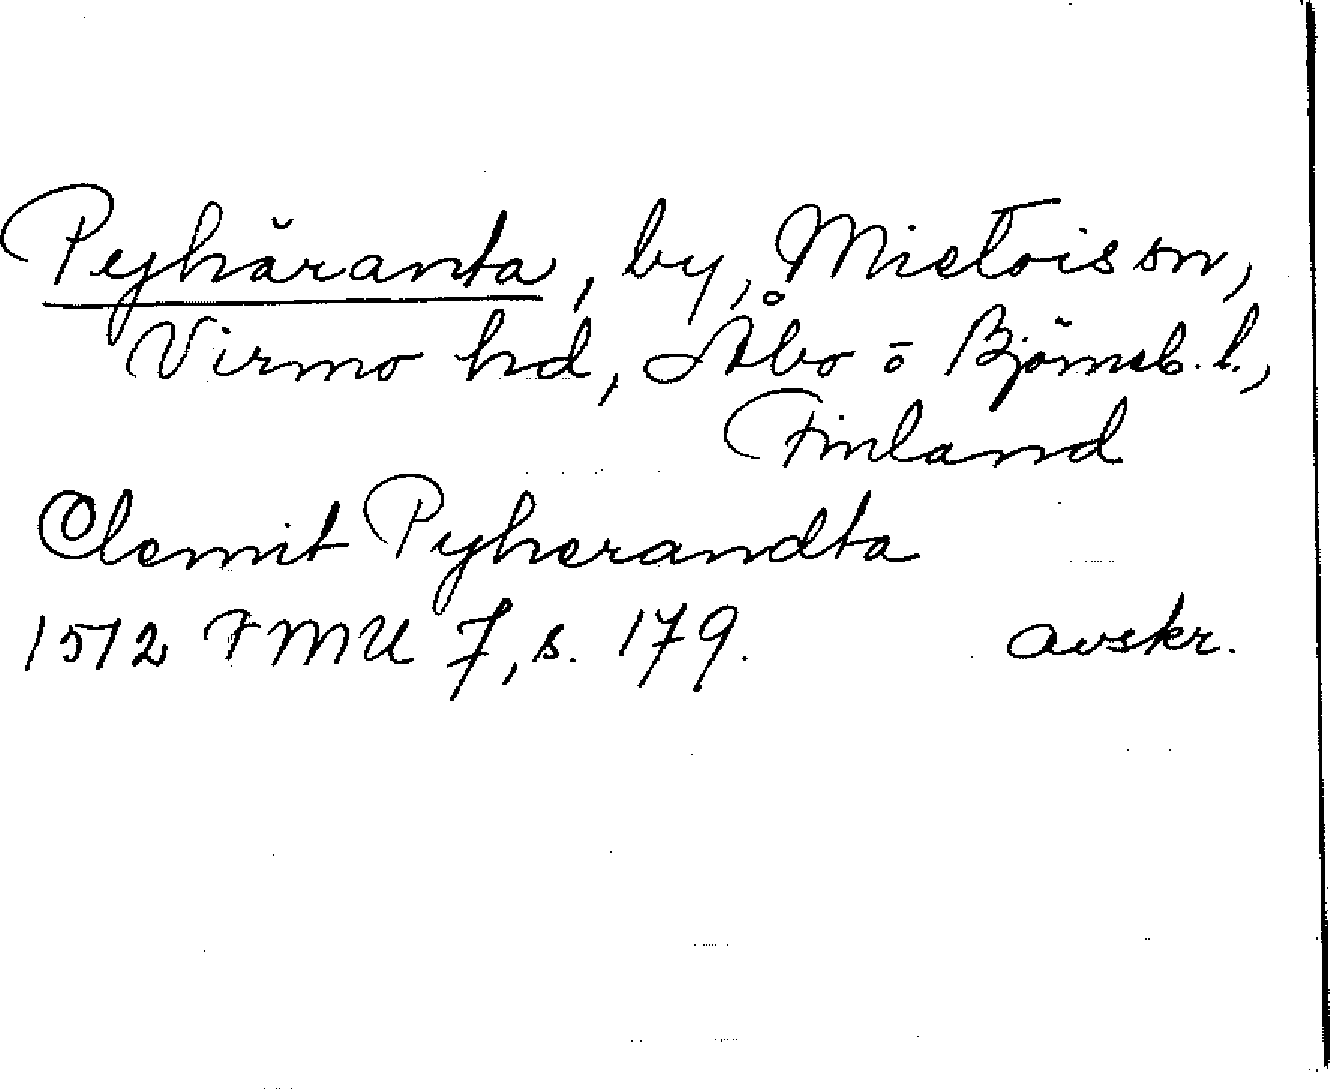 Pyhäranta, by, Mietois sn,
Virmo hd, Åbo o Björneb. l.,
Finland
Clemit Pyherandta
1512 FMU 7, s. 179. avskr.